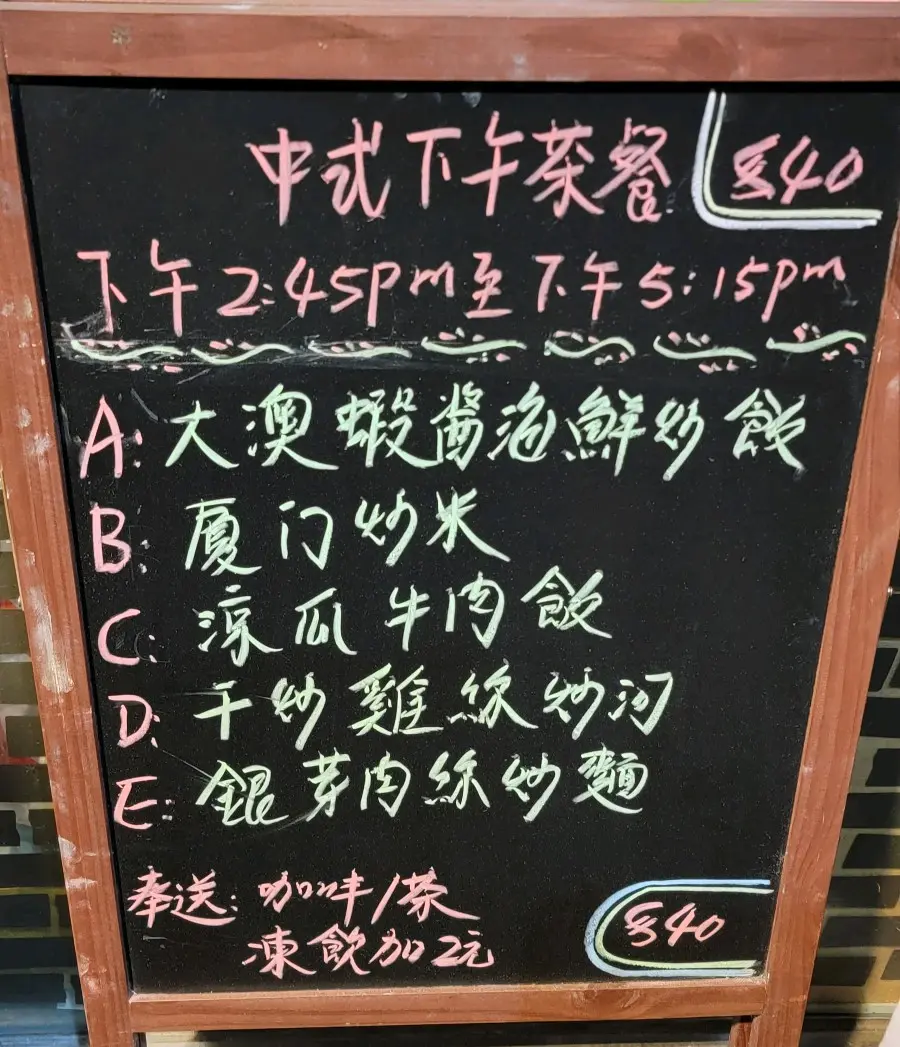 中式下午茶餐 $40
下午2:45pm至下午5:15pm
A: 大澳蝦醬海鮮炒飯
B: 厦门炒米
C: 涼瓜牛肉飯
D: 干炒雞絲炒河
E: 銀芽肉絲炒麵
奉送: 咖啡/茶
凍飲加2元
$40